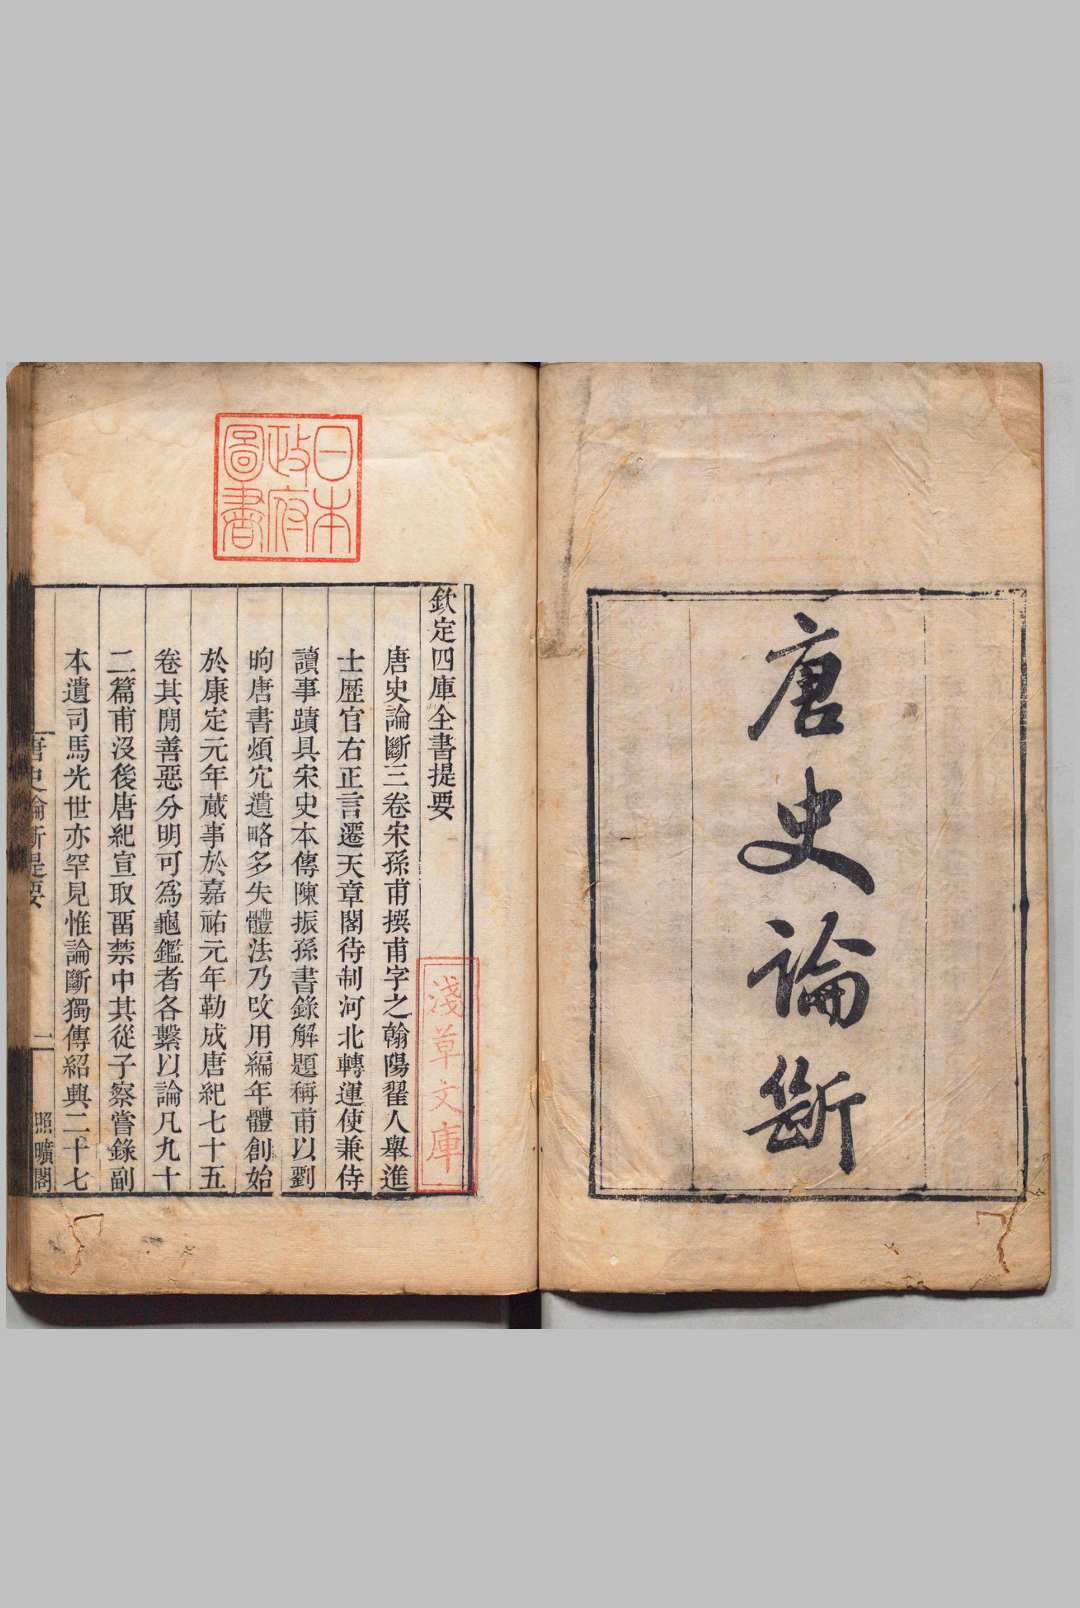 唐史論斷
日本
政府
圖書
欽定四庫全書提要
淺草文庫
唐史論斷三卷宋孫甫撰甫字之翰陽翟人舉進
士歷官右正言遷天章閣待制河北轉運使兼侍
讀事蹟具宋史本傳陳振孫書錄解題稱甫以劉
昫唐書煩宂遺略多失體法乃改用編年體創始
於康定元年蕆事於嘉祐元年勒成唐紀七十五
卷其閒善惡分明可為龜鑑者各繫以論凡九十
二篇甫沒後唐紀宣取畱禁中其從子察嘗錄副
本遺司馬光世亦罕見惟論斷獨傳紹興二十七
唐史論斷提要 一 照曠閣